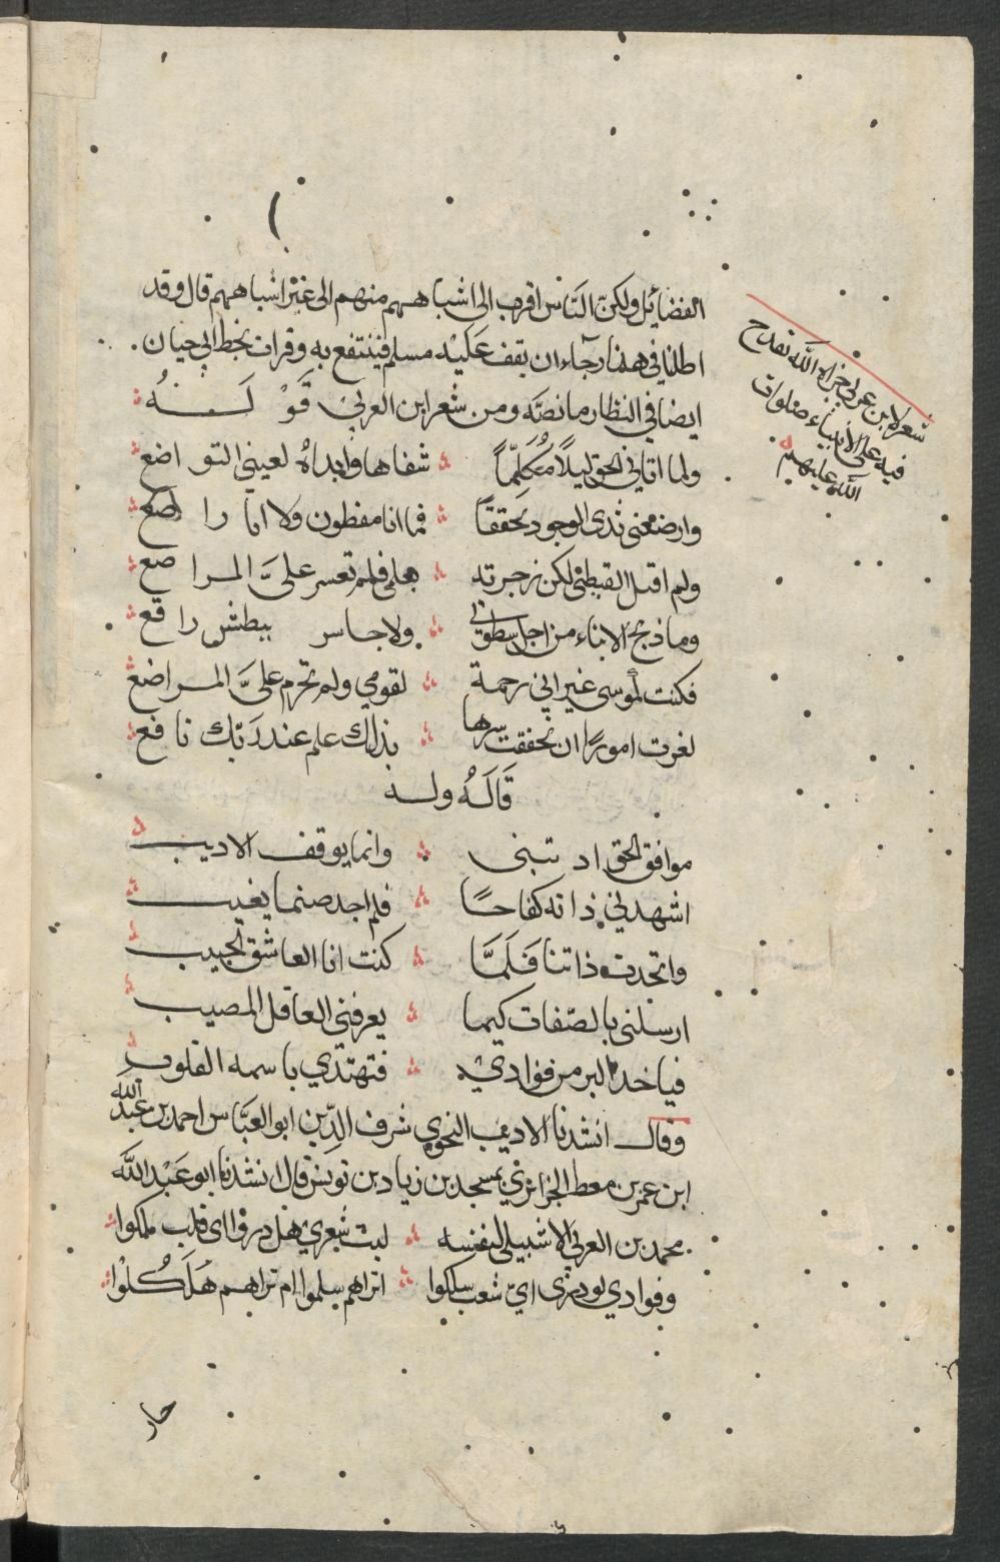 الفضايل ولكن الناس اقرب الى اشباههم منهم الى غير اشباههم قال وقد
اطلنا في هذا رجاء ان يقف عليه مسلم فينتفع به وقرات بخط ابي حيان
ايضا في النظار ما نصه ومن شعر ابن العربي قوله
ولما اتاني الحق ليلا مكلما شفاها وابداه لعيني التواضع
وارضعني ثدى الوجود تحققا فما انا مفطوم ولا انا راضع
ولم اقتل القبطي لكن زجرته بعلمي فلم تعسر علي المراضع
وما ذبح الابناء من اجل سطوتي ولا جاس ببطش راقع
فكنت لموسى غير اني رحمة لقومي ولم تحرم علي المراضع
لغرت امورا ان تحققت سرها بذلك علم عند ربك نافع
قاله وله
موافق الحق اد تبنى وانما يوقف الاديب
اشهدني ذاته كفاحا فلم اجد صنما يغيب
واتحدت ذاتنا فلما كنت انا العاشق الحبيب
ارسلني بالصفات كيما يعرفني العاقل المصيب
فياخد البر من فوادي فتهتدي باسمه القلوب
وقال انشدنا الاديب النحوي شرف الدين ابو العباس احمد بن عبد الله
ابن عمر بن معط الجزائري بمسجد بن زياد بن تونس قال انشدنا ابو عبد الله
محمد بن العربي الاشبيلي لنفسه ليت شعري هل دروا اى قلب ملكوا
وفوادي لو درى اي شعب سلكوا اتراهم سلموا ام تراهم هلكوا
حار
شعر لابن عربي جزاه الله تقدح
فيه على الانبياء صلوات
الله عليهم